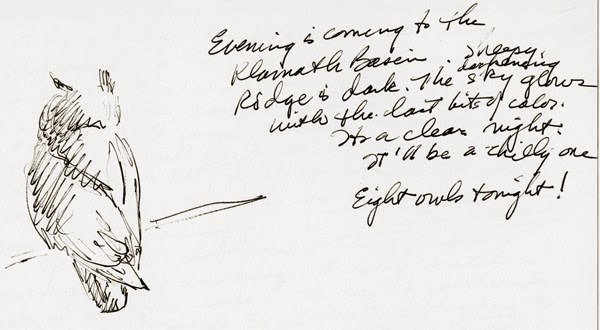 Evening is coming to the
Klamath Basin. Sheepy
Ridge is dark. The sky glows
with the last bits of color.
It's a clear night.
It'll be a chilly one
Eight owls tonight!